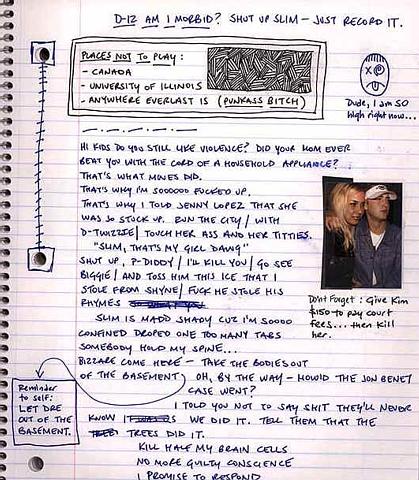 D-12 AM I MORBID? SHUT UP SLIM - JUST RECORD IT.
PLACES NOT TO PLAY:
- CANADA
- UNIVERSITY OF ILLINOIS
- ANYWHERE EVERLAST IS (PUNKASS BITCH)
Dude, I am SO
high right now...
HI KIDS DO YOU STILL LIKE VIOLENCE? DID YOUR MOM EVER
BEAT YOU WITH THE CORD OF A HOUSEHOLD APPLIANCE?
THAT'S WHAT MINES DID.
THAT'S WHY I'M SOOOOO FUCKED UP.
THAT'S WHY I TOLD JENNY LOPEZ THAT SHE
WAS SO STUCK UP. RUN THE CITY / WITH
D-TWIZZIE / TOUCH HER ASS AND HER TITTIES.
"SLIM, THAT'S MY GIRL DAWG"
SHUT UP, P-DIDDY / I'LL KILL YOU / GO SEE
BIGGIE / AND TOSS HIM THIS ICE THAT I
STOLE FROM SHYNE / FUCK HE STOLE HIS
RHYMES
SLIM IS MADD SHADY CUZ I'M SOOO
CONFINED DROPED ONE TOO MANY TABS
SOMEBODY HOLD MY SPINE...
BIZZARE COME HERE - TAKE THE BODIES OUT
OF THE BASEMENT
OH, BY THE WAY - HOW'D THE JON BENET
CASE WENT?
I TOLD YOU NOT TO SAY SHIT THEY'LL NEVER
KNOW WE DID IT. TELL THEM THAT THE
TREES DID IT.
KILL HALF MY BRAIN CELLS
NO MORE GUILTY CONSCIENCE
I PROMISE TO RESPOND
Don't Forget: Give Kim
$150 to pay court
fees... then kill
her.
Reminder
to self:
LET DRE
OUT OF THE
BASEMENT.